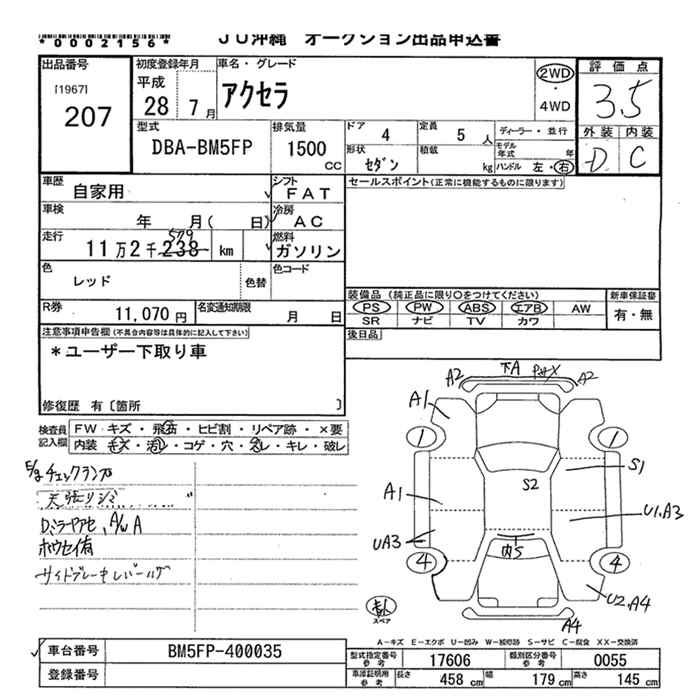 *0002156*
JU沖縄 オークション出品申込書
出品番号 初度登録年月 車名・グレード 評価点
[1967] 平成 2WD
207 28 7月 アクセラ ・ 3.5
4WD
型式 排気量 ドア 4 定員 5人 ディーラー・並行 外装 内装
DBA-BM5FP 1500 cc 形状 セダン 積載 kg モデル年式 年 D C
ハンドル 左・右
車歴 自家用 シフト FAT セールスポイント(正常に機能するものに限ります)
車検 年 月( 日) 冷房 AC
走行 11万2千238 km 燃料 ガソリン
579
色 レッド 色替 色コード
装備品 (純正品に限り○をつけてください) 新車保証書
R券 11,070円 名変通知期限 月 日 PS PW ABS エアB AW 有・無
SR ナビ TV カワ
注意事項申告欄(不具合内容等は具体的に記入して下さい) 後日品
*ユーザー下取り車
修復歴 有〔箇所 〕
検査員記入欄 FW キズ・飛石・ヒビ割・リペア跡・×要
内装 キズ・汚レ・コゲ・穴・スレ・キレ・破レ
下A
A2 A2
A1
1 1
S1
S2
A1
U1.A3
UA3
内S
4 4
U2.A4
A4
チェックランプ
天張りシミ
Dミラーヤアセ、A/W A
ホウセイ有
サイドブレーキレバーハゲ
スペア
A-キズ E-エクボ U-凹み W-補修跡 S-サビ C-腐食 XX-交換済
車台番号 BM5FP-400035 型式指定番号 参考 17606 類別区分番号 参考 0055
登録番号 車庫証明用 参考 長さ 458 cm 幅 179 cm 高さ 145 cm